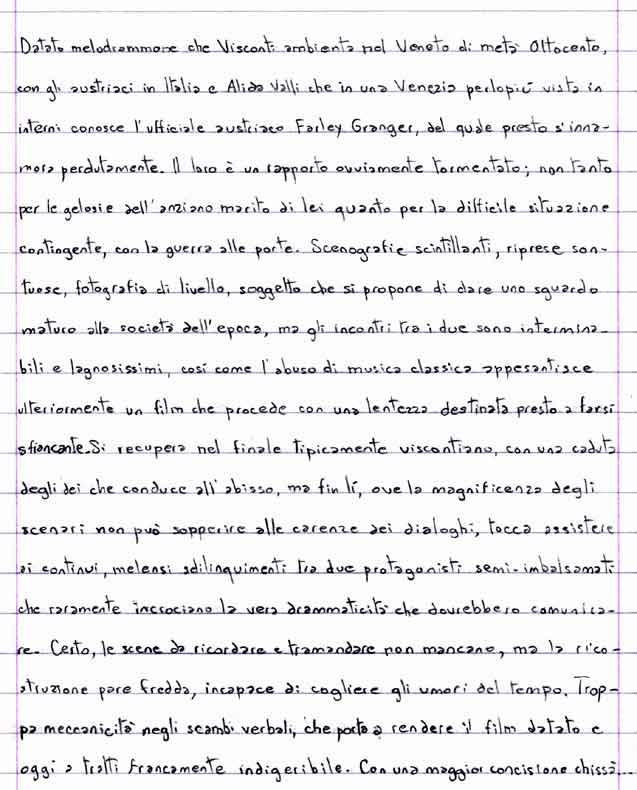 Datato melodrammone che Visconti ambienta nel Veneto di metà Ottocento,
con gli austriaci in Italia e Alida Valli che in una Venezia perlopiù vista in
interni conosce l'ufficiale austriaco Farley Granger, del quale presto s'inna-
mora perdutamente. Il loro è un rapporto ovviamente tormentato; non tanto
per le gelosie dell'anziano marito di lei quanto per la difficile situazione
contingente, con la guerra alle porte. Scenografie scintillanti, riprese son-
tuose, fotografia di livello, soggetto che si propone di dare uno sguardo
maturo alla società dell'epoca, ma gli incontri tra i due sono intermina-
bili e lagnosissimi, così come l'abuso di musica classica appesantisce
ulteriormente un film che procede con una lentezza destinata presto a farsi
sfiancante. Si recupera nel finale tipicamente viscontiano, con una caduta
degli dei che conduce all'abisso, ma fin lì, ove la magnificenza degli
scenari non può sopperire alle carenze dei dialoghi, tocca assistere
ai continui, melensi sdilinquimenti tra due protagonisti semi-imbalsamati
che raramente incrociano la vera drammaticità che dovrebbero comunica-
re. Certo, le scene da ricordare e tramandare non mancano, ma la rico-
struzione pare fredda, incapace di cogliere gli umori del tempo. Trop-
pa meccanicità negli scambi verbali, che porta a rendere il film datato e
oggi a tratti francamente indigeribile. Con una maggior concisione chissà...